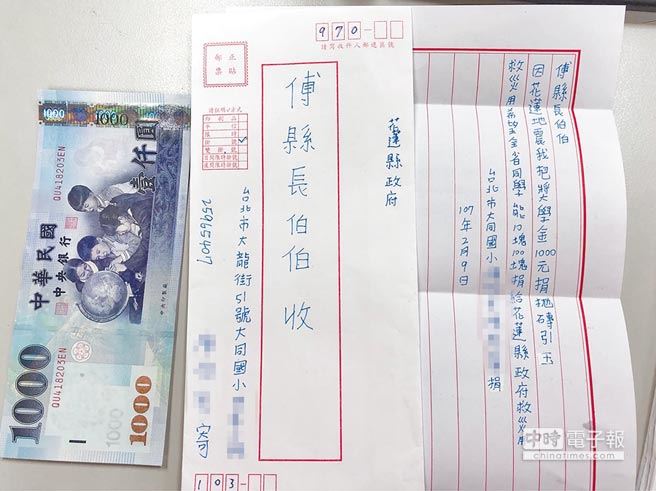 1000
1000
壹仟圓
QU418203EN
中華民國
中央銀行
QU418203EN
1000
1000
1000
970-
請寫收件人郵遞區號
正貼
郵票
花蓮縣政府
傅縣長伯伯 收
台北市大龍街51號大同國小
寄
25965407
103-
傅縣長伯伯
因花蓮地震我把奬學金1000元捐拋磚引玉
救災用希望全省同學能10塊100塊捐給花蓮縣政府救災用
台北市大同國小 捐
107年2月9日
中時電子報
chinatimes.com